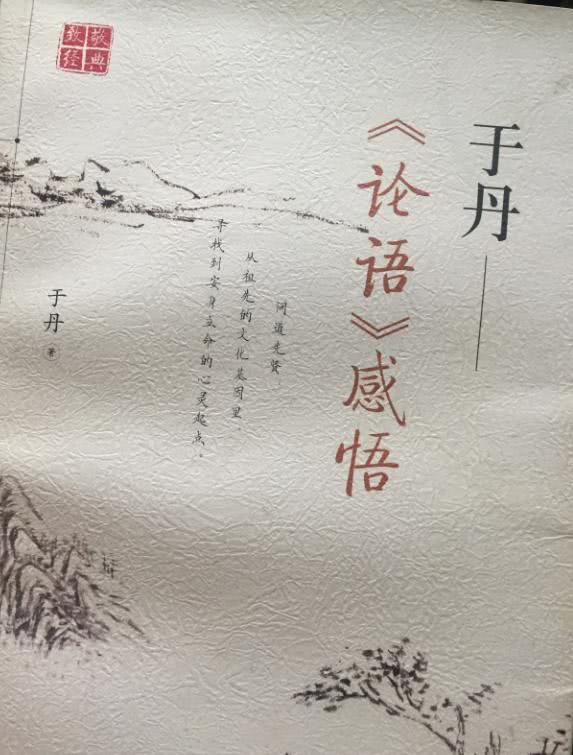 于丹
《论语》感悟
问道先贤
从祖先的文化基因里
寻找到安身立命的心灵起点。
于丹 著
致敬
经典